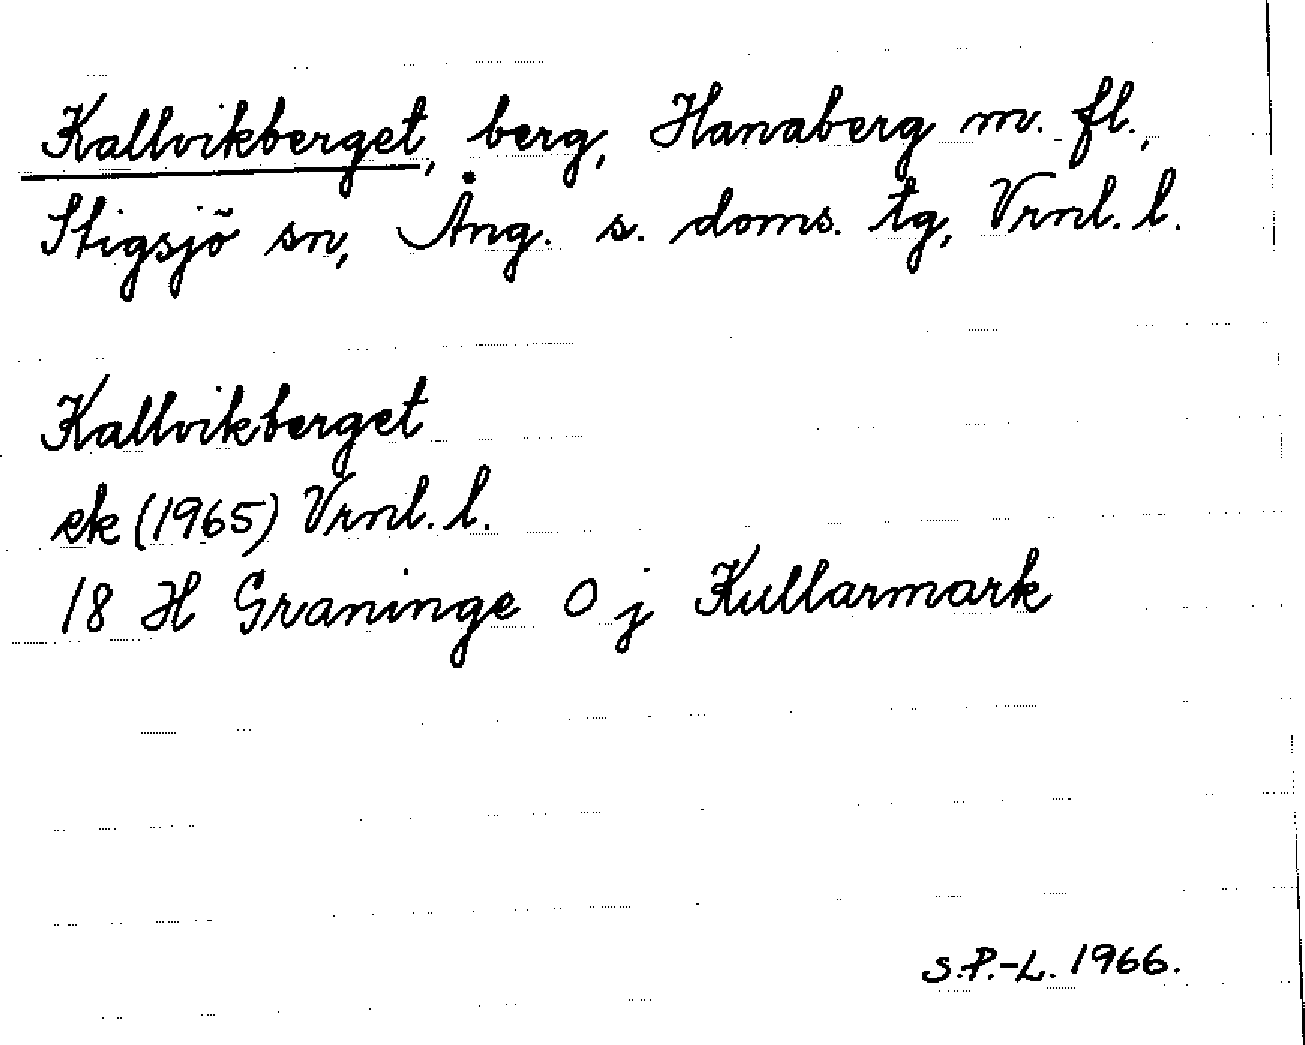 Kallvikberget, berg, Hanaberg m. fl.,
Stigsjö sn, Ång. s. doms. tg, Vrnl. l.
Kallvikberget
ek (1965) Vrnl. l.
18 H Graninge 0 j Kullarmark
S.P.-L. 1966.